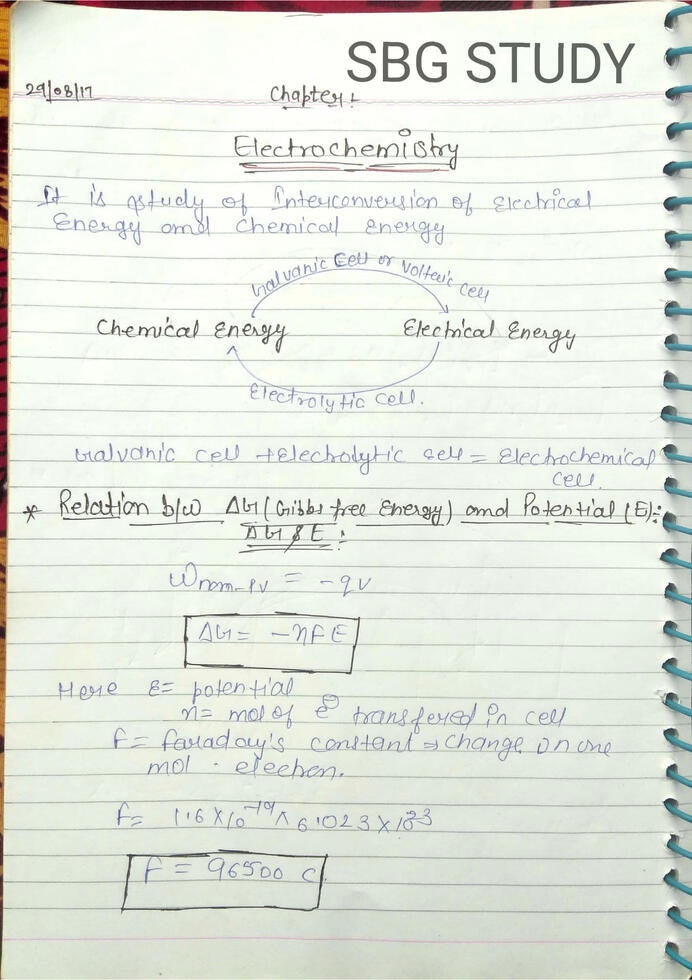 SBG STUDY
29/08/17
Chapter:
Electrochemistry
It is study of Interconversion of Electrical
Energy and Chemical energy
Galvanic Cell or Voltaic cell
Chemical Energy Electrical Energy
Electrolytic Cell.
Galvanic cell + Electrolytic cell = Electrochemical
cell.
* Relation b/w ΔG (Gibbs free Energy) and Potential (E):
ΔG & E:
Wnon-PV = -qV
ΔG = -nFE
Here E = potential
n = mol of e⊖ transfered in cell
F = faraday's constant ⇒ Change on one
mol . electron.
F = 1.6 × 10^-19 × 6.023 × 10^23
F = 96500 C.